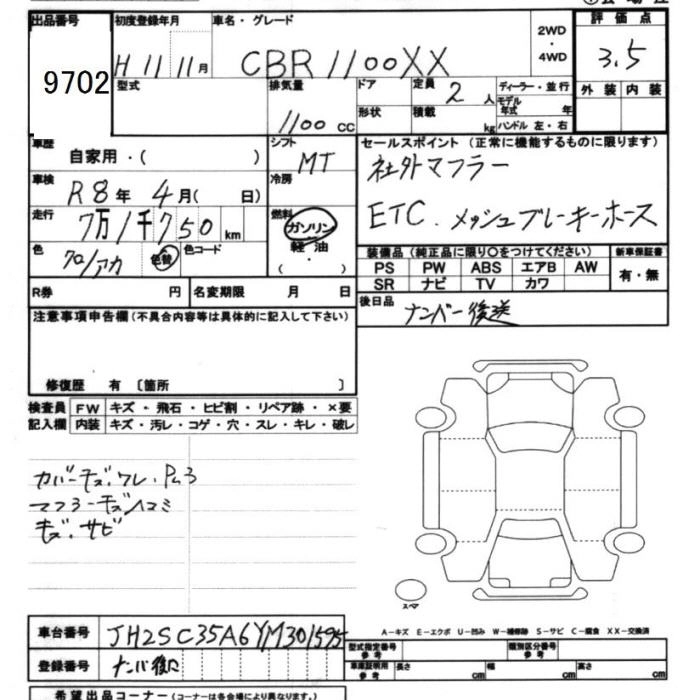 出品番号 初度登録年月 車名・グレード 2WD・4WD 評価点
9702 H 11 11月 CBR 1100XX 3.5
型式 排気量 1100 cc ドア 形状 定員 2 人 積載 kg ディーラー・並行 モデル年式 年 ハンドル 左・右 外装 内装
車歴 自家用・( ) シフト MT セールスポイント (正常に機能するものに限ります)
社外マフラー
車検 R8年 4月( 日) 冷房
ETC. メッシュブレーキホース
走行 7万1千750 km 燃料 ガソリン 軽・油 ・( )
色 クロ/アカ 色替 色コード
装備品 (純正品に限り〇をつけてください) 新車保証書
PS PW ABS エアB AW 有・無
SR ナビ TV カワ
R券 円 名変期限 月 日
後日品 ナンバー後送
注意事項申告欄 (不具合内容等は具体的に記入して下さい)
修復歴 有 〔箇所 〕
検査員 FW キズ・飛石・ヒビ割・リペア跡・×要
記入欄 内装 キズ・汚レ・コゲ・穴・スレ・キレ・破レ
カバーキズ.ワレ.
マフラーキズヘコミ
キズ.サビ
スペア
A-キズ E-エクボ U-凹み W-補修跡 S-サビ C-腐食 XX-交換済
車台番号 JH2SC35A6YM301595
登録番号
型式指定番号 参考 類別区分番号 参考
車庫証明用 参考 長さ cm 幅 cm 高さ cm
希望出品コーナー (コーナーは各会場により異なります。)